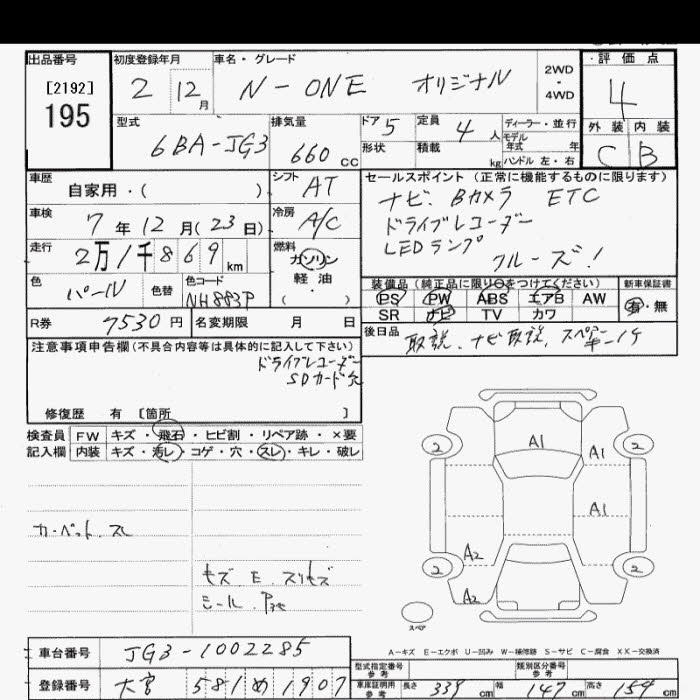 出品番号
[2192]
195
初度登録年月
2 12月
車名・グレード
N-ONE オリジナル
2WD
・
4WD
評価点
4
外装 内装
C B
型式
6BA-JG3
排気量
660 cc
ドア 5
定員 4 人
形状
積載 kg
ディーラー・並行
モデル
年式 年
ハンドル 左・右
車歴
自家用・( )
シフト AT
車検
7年12月(23日)
冷房 A/C
走行
2万1千869 km
燃料
ガソリン
軽油
( ・ )
色
パール
色替
色コード
NH883P
R券
7530円
名変期限 月 日
セールスポイント (正常に機能するものに限ります)
ナビ、Bカメラ ETC
ドライブレコーダー
LEDランプ
クルーズ!
装備品(純正品に限り○をつけてください)
PS PW ABS エアB AW
SR ナビ TV カワ
新車保証書
有・無
後日品
取説、ナビ取説、スペアーキー1ケ
注意事項申告欄(不具合内容等は具体的に記入して下さい)
ドライブレコーダー
SDカード欠
修復歴 有 [箇所 ]
検査員
記入欄
FW キズ・飛石・ヒビ割・リペア跡・×要
内装 キズ・汚レ・コゲ・穴・スレ・キレ・破レ
カーペット、スレ
キズ E. スリキズ
シール、
2 A1 2
A1
A2
2 2
A2
スペア
A-キズ E-エクボ U-凹み W-補修跡 S-サビ C-腐食 XX-交換済
車台番号
JG3-1002285
登録番号
大宮 581 め 1907
型式指定番号
参考
類別区分番号
参考
車庫証明用
参考
長さ 339 cm 幅 147 cm 高さ 154 cm